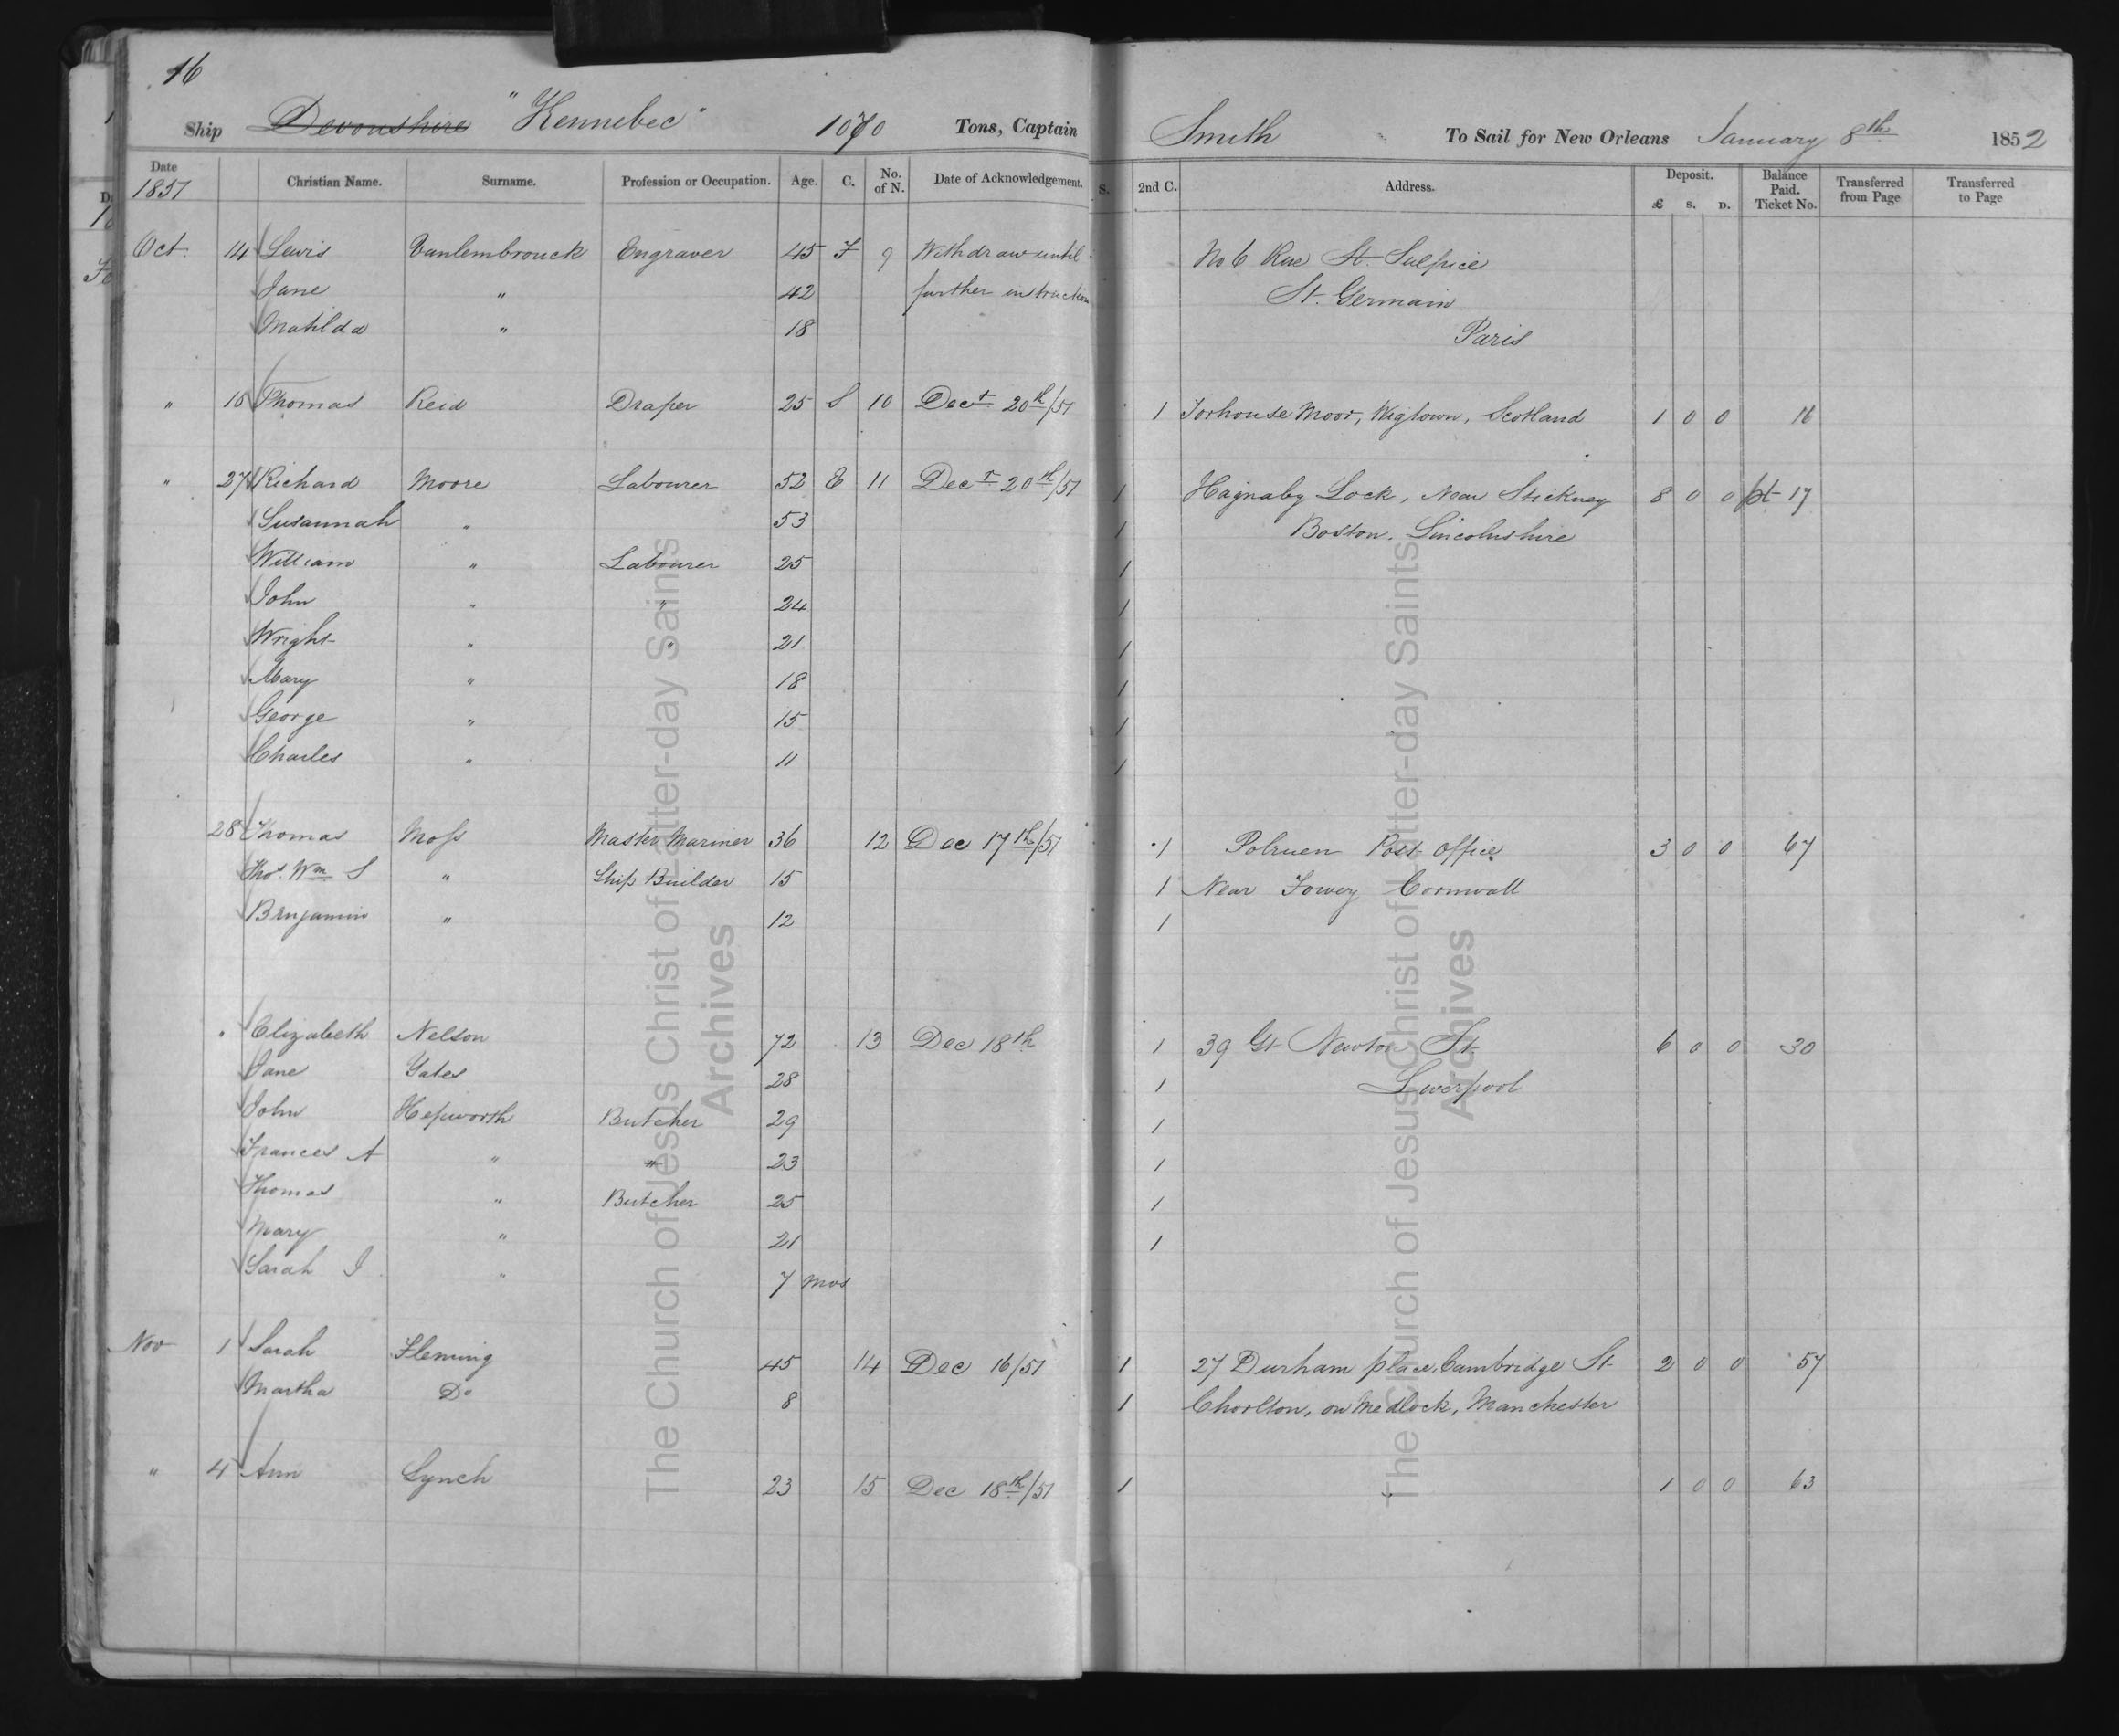 16
Ship Devonshire "Kennebec" 1070 Tons, Captain Smith To Sail for New Orleans January 8th 1852
Date 1851 Christian Name. Surname. Profession or Occupation. Age. C. No. of N. Date of Acknowledgement. S. 2nd C. Address. Deposit. £ s. D. Balance Paid. Ticket No. Transferred from Page Transferred to Page
Oct. 14 Lewis Vanlembrouck Engraver 45 F 9 Withdraw until No 6 Rue St. Sulpice
Jane " 42 further instruction St. Germain
Matilda " 18 Paris
" 15 Thomas Reid Draper 25 S 10 Decr 20th/51 1 Torhouse Moor, Wigtown, Scotland 1 0 0 16
" 27 Richard Moore Labourer 52 E 11 Decr 20th/51 1 Hagnaby Lock, Near Stickney 8 0 0 pt 17
Susannah " 53 1 Boston. Lincolnshire
William " Labourer 25 1
John " " 24 1
Wright " " 21 1
Mary " 18 1
George " 15 1
Charles " 11 1
28 Thomas Moss Master Mariner 36 12 Dec 17th/51 1 Polruen Post Office 3 0 0 67
Thos. Wm S " Ship Builder 15 1 Near Fowey Cornwall
Benjamin " 12 1
" Elizabeth Nelson 72 13 Dec 18th 1 39 Gt Newton St. 6 0 0 30
Jane Gates 28 1 Liverpool
John Hepworth Butcher 29 1
Frances A " " 23 1
Thomas " Butcher 25 1
Mary " 21 1
Sarah J " 7 mos
Nov 1 Sarah Fleming 45 14 Dec 16/51 1 27 Durham place, Cambridge St 2 0 0 57
Martha Do 8 1 Chorlton, on Medlock, Manchester
" 4 Ann Lynch 23 15 Dec 18th/51 1 1 0 0 63
The Church of Jesus Christ of Latter-day Saints
Archives
The Church of Jesus Christ of Latter-day Saints
Archives